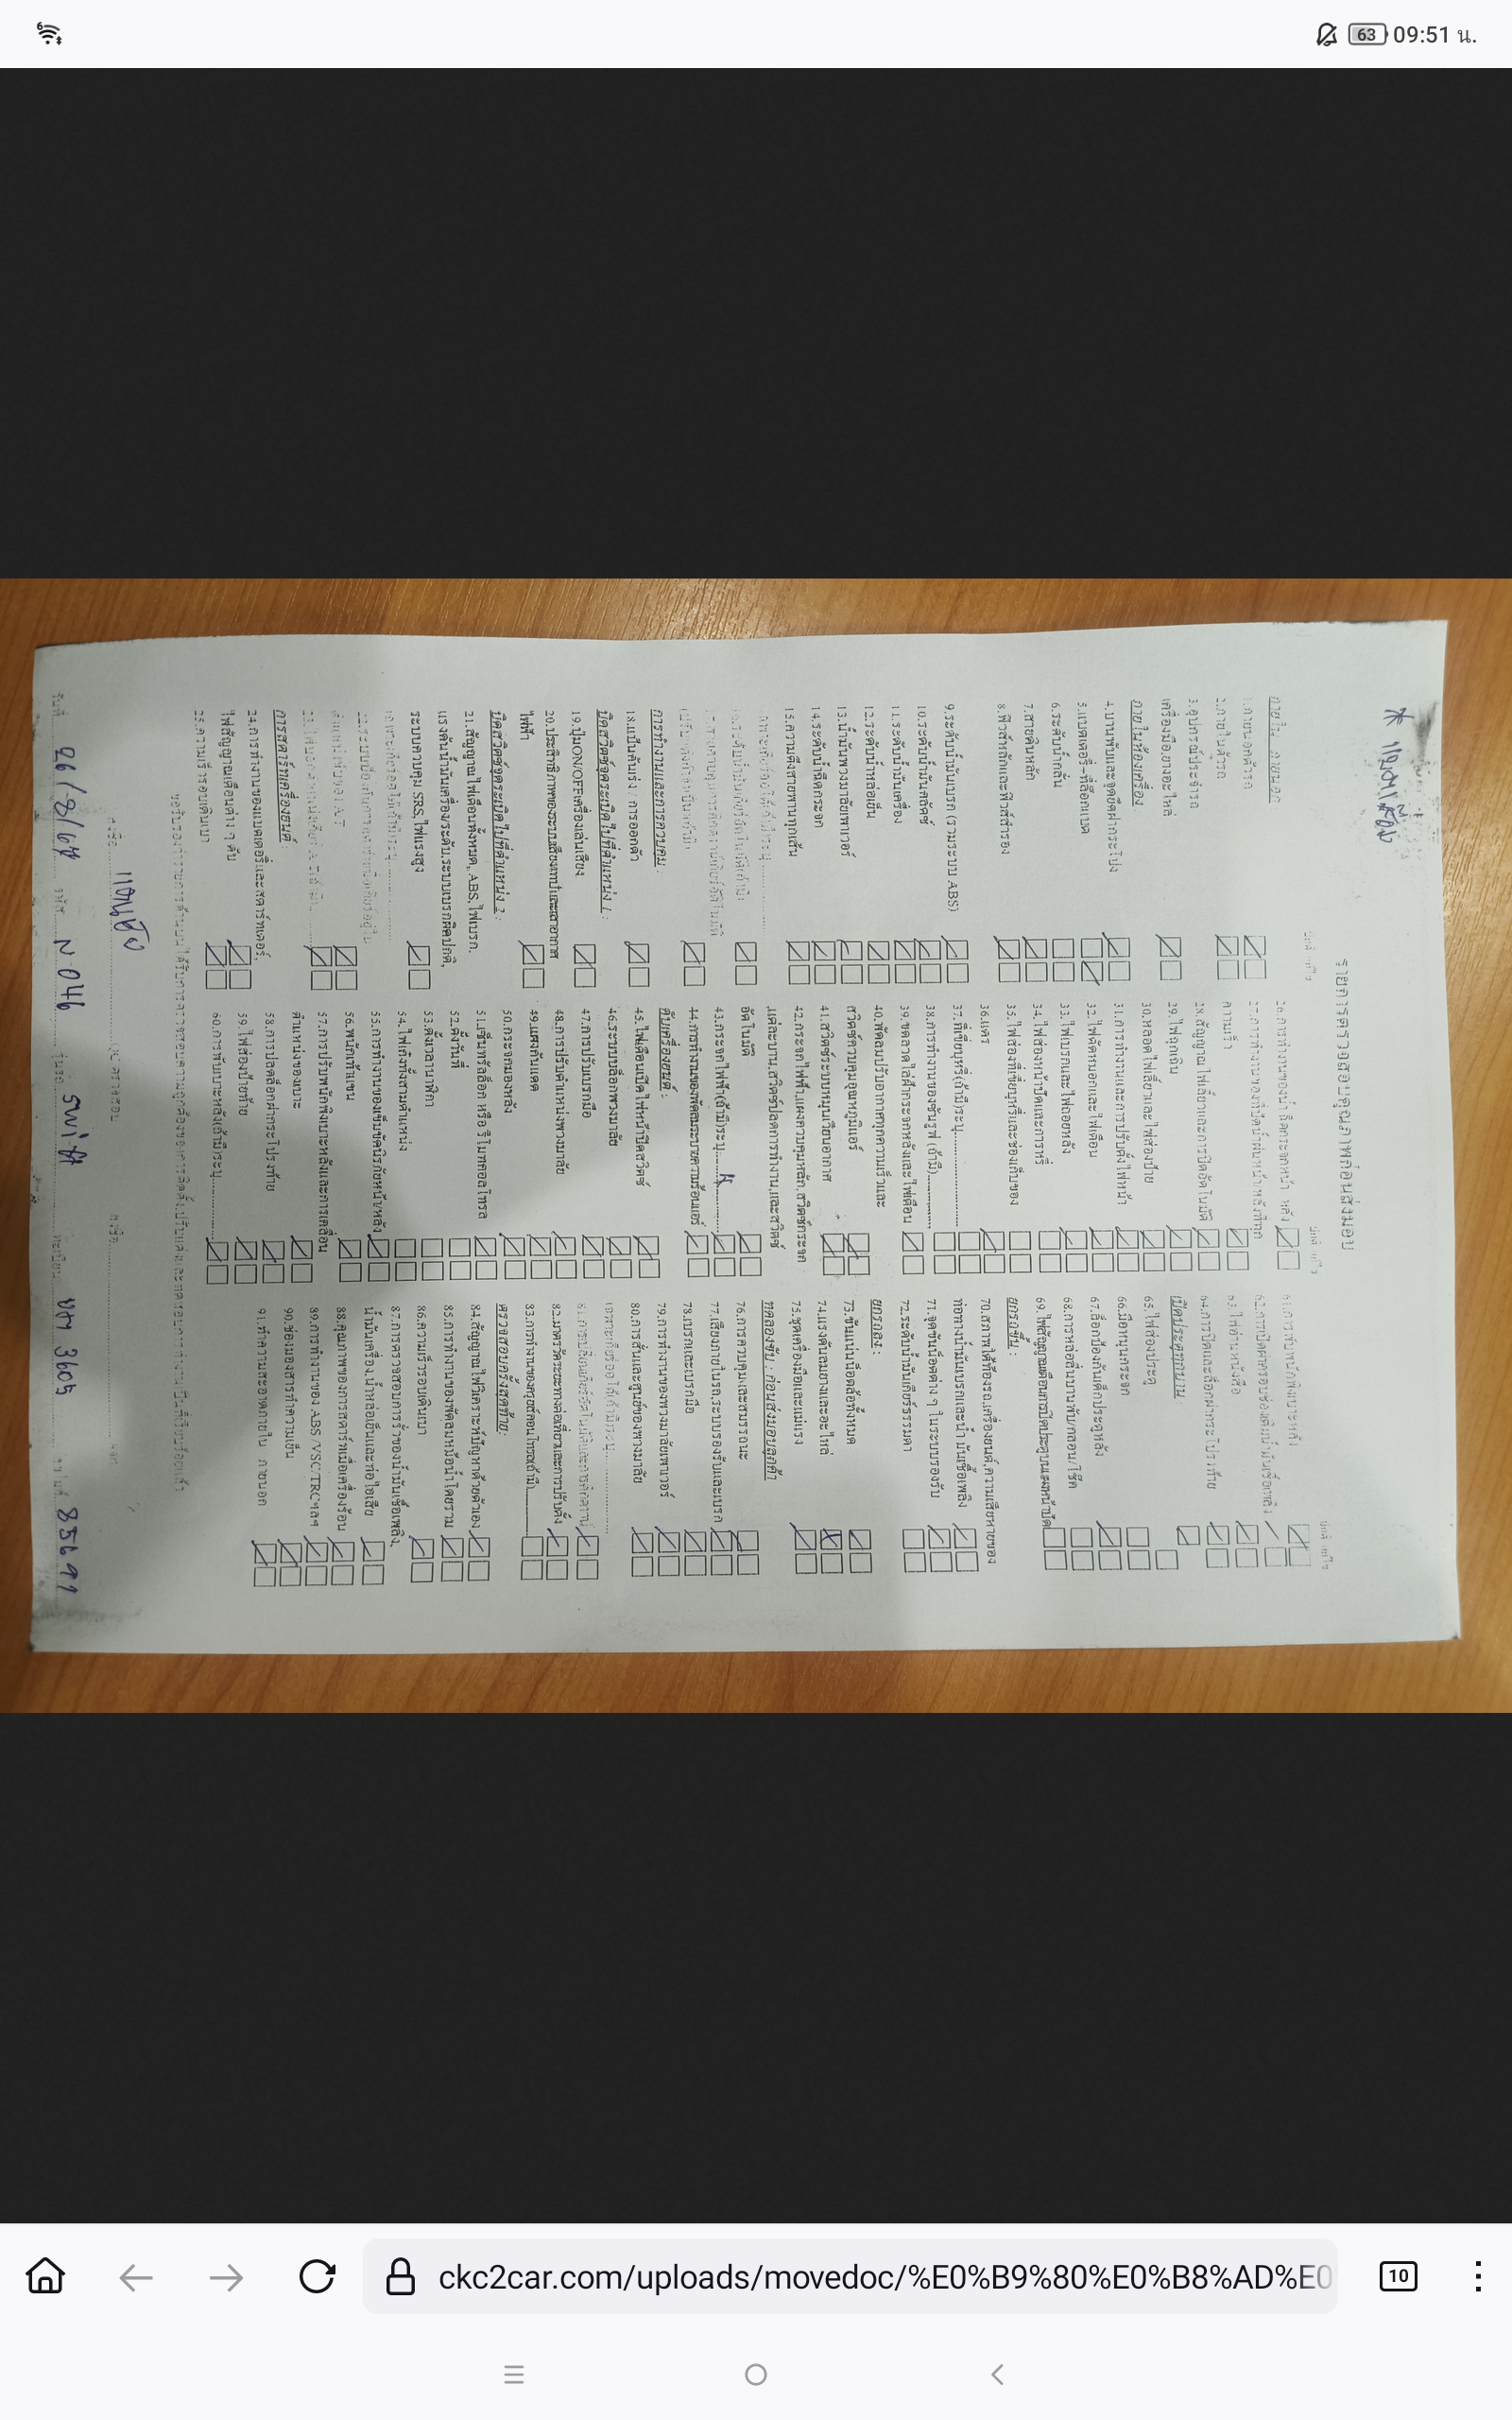 09:51 น.
63
* แบตฯ เสื่อม
รายการตรวจสอบคุณภาพก่อนส่งมอบ
ภายใน ภายนอก
1.ภายนอกตัวรถ
2.ภายในตัวรถ
3.อุปกรณ์ประจำรถ
เครื่องมือ,ยางอะไหล่
ภายในห้องเครื่อง
4.บานพับและจุดยึดฝากระโปรง
5.แบตเตอรี่-ที่ล็อกแบต
6.ระดับน้ำกลั่น
7.สายดินหลัก
8.ฟิวส์หลักและฟิวส์สำรอง
9.ระดับน้ำมันเบรก (รวมระบบ ABS)
10.ระดับน้ำมันคลัตช์
11.ระดับน้ำมันเครื่อง
12.ระดับน้ำหล่อเย็น
13.น้ำมันพวงมาลัยเพาเวอร์
14.ระดับน้ำฉีดกระจก
15.ความตึงสายพานทุกเส้น
การทำงานและการควบคุม :
18.แป้นคันเร่ง / การออกตัว
บิดสวิตช์จุดระเบิดไปที่ตำแหน่ง 1 :
19.ปุ่มON/OFFเครื่องเล่นเสียง
20.ประสิทธิภาพของระบบเสียงเทปและเสาอากาศ
ไฟฟ้า
บิดสวิตช์จุดระเบิดไปที่ตำแหน่ง 2 :
21.สัญญาณไฟเตือนทั้งหมด, ABS, ไฟเบรก,
แรงดันน้ำมันเครื่อง/ระดับ,ระบบเบรกผิดปกติ,
ระบบควบคุม SRS,ไฟแรงสูง
การสตาร์ทเครื่องยนต์
24.การทำงานของแบตเตอรี่และสตาร์ทเตอร์,
ไฟสัญญาณเตือนต่าง ๆ ดับ
25.ความเร็วรอบเดินเบา
26.การทำงานของน้ำฉีดกระจกหน้า หลัง
27.การทำงานของที่ปัดน้ำฝนหน้า/หลังที่ทุก
ความเร็ว
28.สัญญาณไฟเลี้ยวและการปิดอัตโนมัติ
29.ไฟฉุกเฉิน
30.หลอดไฟเลี้ยวและไฟส่องป้าย
31.การทำงานและการปรับตั้งไฟหน้า
32.ไฟตัดหมอกและไฟเตือน
33.ไฟเบรกและไฟถอยหลัง
34.ไฟส่องหน้าปัดและการหรี่
35.ไฟส่องที่เขี่ยบุหรี่และช่องเก็บของ
36.แตร
37.ที่เขี่ยบุหรี่(ถ้ามี)ระบุ
38.การทำงานของซันรูฟ (ถ้ามี)
39.ขดลวดไล่ฝ้ากระจกหลังและไฟเตือน
40.พัดลมปรับอากาศทุกความเร็วและ
สวิตช์ควบคุมอุณหภูมิแอร์
41.สวิตช์ระบบหมุนเวียนอากาศ
42.กระจกไฟฟ้า,แผงควบคุมหลัก,สวิตช์กระจก
แต่ละบาน,สวิตช์ปลดการทำงาน,และสวิตช์
อัตโนมัติ
43.กระจกไฟฟ้า(ถ้ามี)ระบุ
44.การทำงานของพัดลมระบายความร้อนแอร์
ดับเครื่องยนต์ :
45.ไฟเตือนเปิดไฟหน้าปิดสวิตช์
46.ระบบปลล็อกพวงมาลัย
47.การปรับเบรกมือ
48.การปรับตำแหน่งพวงมาลัย
49.แผงกันแดด
50.กระจกมองหลัง
51.เซ็นทรัลล็อก หรือ รีโมทคอลโทรล
52.ตั้งวันที่
53.ตั้งเวลานาฬิกา
54.ไฟเก๋งทั้งสามตำแหน่ง
55.การทำงานของเข็มขัดนิรภัยหน้า/หลัง
56.พนักเท้าแขน
57.การปรับพนักพิงเบาะหลังและการเคลื่อน
ตำแหน่งของเบาะ
58.การปลดล็อกฝากระโปรงท้าย
59.ไฟส่องป้ายท้าย
60.การพับเบาะหลัง(ถ้ามี)ระบุ
61.การพับพนักพิงเบาะหลัง
62.การเปิดฝาครอบช่องเติมน้ำมันเชื้อเพลิง
63.ไฟอ่านหนังสือ
64.การปิดและล็อกฝากระโปรงท้าย
เปิดประตูทุกบาน
65.ไฟส่องประตู
66.มือหมุนกระจก
67.ล็อกป้องกันเด็กประตูหลัง
68.การหล่อลื่นบานพับ/กลอน/โช๊ค
69.ไฟสัญญาณเตือนการปิดประตูบนแผงหน้าปัด
ยกรถขึ้น :
70.สภาพใต้ท้องรถ,เครื่องยนต์,ความเสียหายของ
ท่อทางน้ำมันเบรกและน้ำมันเชื้อเพลิง
71.จุดขันน็อตต่าง ๆ ในระบบรองรับ
72.ระดับน้ำมันเกียร์ธรรมดา
ยกรถลง :
73.ขันแน่นน็อตล้อทั้งหมด
74.แรงดันลมยางและอะไหล่
75.ชุดเครื่องมือและแม่แรง
ทดลองขับ : ก่อนส่งมอบลูกค้า
76.การควบคุมและสมรรถนะ
77.เสียงภายในรถ,ระบบรองรับและเบรก
78.เบรกและเบรกมือ
79.การทำงานของพวงมาลัยเพาเวอร์
80.การสั่นและศูนย์ของพวงมาลัย
82.มาตรวัดระยะทางต่อเที่ยวและการปรับตั้ง
83.การทำงานของครูยส์คอนโทรล(ถ้ามี)
ตรวจสอบครั้งสุดท้าย:
84.สัญญาณไฟวิเคราะห์ปัญหาด้วยตัวเอง
85.การทำงานของพัดลมหม้อน้ำโดยรวม
86.ความเร็วรอบเดินเบา
87.การตรวจสอบการรั่วของน้ำมันเชื้อเพลิง,
น้ำมันเครื่อง,น้ำหล่อเย็นและท่อไอเสีย
88.คุณภาพของการสตาร์ทเมื่อเครื่องร้อน
89.การทำงานของ ABS /VSC/TRCฯลฯ
90.ช่องมองสารทำความเย็น
91.ทำความสะอาดภายใน ภายนอก
วันที่ 26/8/68 รหัส N 046 รุ่นรถ ทะเบียน 3605 85691
ckc2car.com/uploads/movedoc/%E0%B9%80%E0%B8%AD%E0
10